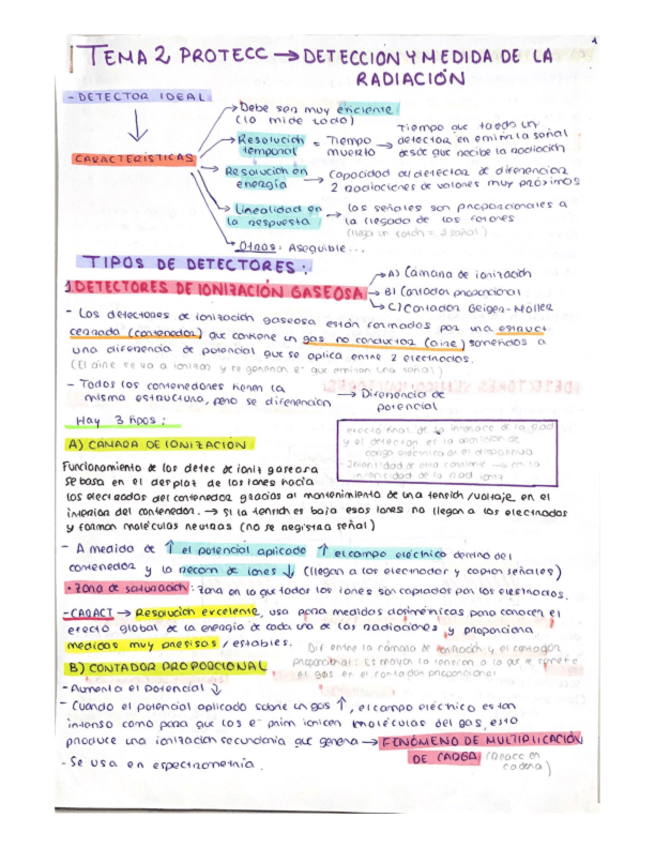 1
TEMA 2 PROTECC → DETECCION Y MEDIDA DE LA
RADIACIÓN
- DETECTOR IDEAL
CARACTERÍSTICAS
→ Debe ser muy eficiente
(lo mide todo)
→ Resolución temporal = Tiempo muerto → Tiempo que tarda un
detector en emitir la señal
desde que recibe la radiación
→ Resolución en energía → Capacidad del detector de diferenciar
2 radiaciones de valores muy próximos
→ Linealidad en la respuesta → las señales son proporcionales a
la llegada de los fotones
(llega un fotón = 1 señal)
→ Otros: Asequible...
TIPOS DE DETECTORES:
1. DETECTORES DE IONIZACIÓN GASEOSA
→ A) Cámara de ionización
→ B) Contador proporcional
→ C) Contador Geiger-Müller
- Los detectores de ionización gaseosa están formados por una estruct
cerrada (contenedor) que contiene un gas no conductor (aire) sometidos a
una diferencia de potencial que se aplica entre 2 electrodos.
(El aire se va a ionizar y se generan e- que emiten una señal)
- Todos los contenedores tienen la
misma estructura, pero se diferencian → Diferencia de
potencial
Hay 3 tipos:
A) CAMARA DE IONIZACIÓN
efecto final de la interacc de la rad
y el detector es la aparición de
carga eléctrica en el dispositivo
Funcionamiento de los detec de ioniz gaseosa
se basa en el desplaz de los iones hacia
los electrodos del contenedor gracias al mantenimiento de una tensión/voltaje en el
interior del contenedor. → Si la tensión es baja esos iones no llegan a los electrodos
y forman moléculas neutras (no se registra señal)
- A medida de ↑ el potencial aplicado ↑ el campo eléctrico dentro del
contenedor y la recom de iones ↓ (llegan a los electrodos y captan señales)
• Zona de saturación: Zona en la que todos los iones son captados por los electrodos.
- CARACT → Resolución excelente, usa para medidas dosimétricas para conocer el
efecto global de la energía de cada una de las radiaciones y proporciona
medidas muy precisas/estables.
Dif entre la cámara de ionización y el contador
proporcional: Es mayor la tensión a la que se somete
el gas en el contador proporcional
B) CONTADOR PROPORCIONAL
- Aumenta el potencial ↓
- Cuando el potencial aplicado sobre un gas ↑, el campo eléctrico es tan
intenso como para que los e- prim ionicen moléculas del gas, esto
produce una ionización secundaria que genera → FENÓMENO DE MULTIPLICACIÓN
DE CARGA (Reacc en
cadena)
- Se usa en espectrometría.